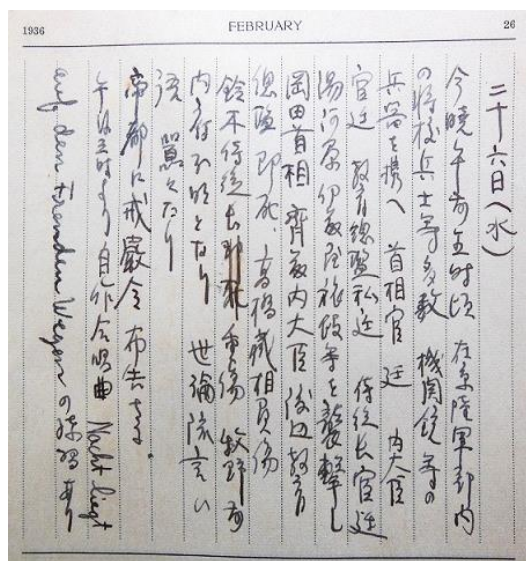 1936 FEBRUARY 26
二十六日(水)
今暁午前五時頃 在京陸軍部内
の将校兵士等多数 機関銃等の
兵器を携へ 首相官廷 内大臣
官廷 教育総監私廷 侍従長官廷
湯河原伊藤屋旅館等を襲撃し
岡田首相 斉藤内大臣 渡辺教育
総監 即死、高橋蔵相負傷
鈴木侍従長 重傷 牧野前
内府不明となり 世論流言
囂々たり
帝都に戒厳令布告さる。
午後三時より自作合唱曲 Nacht liegt
auf den fremden Wegen の練習あり